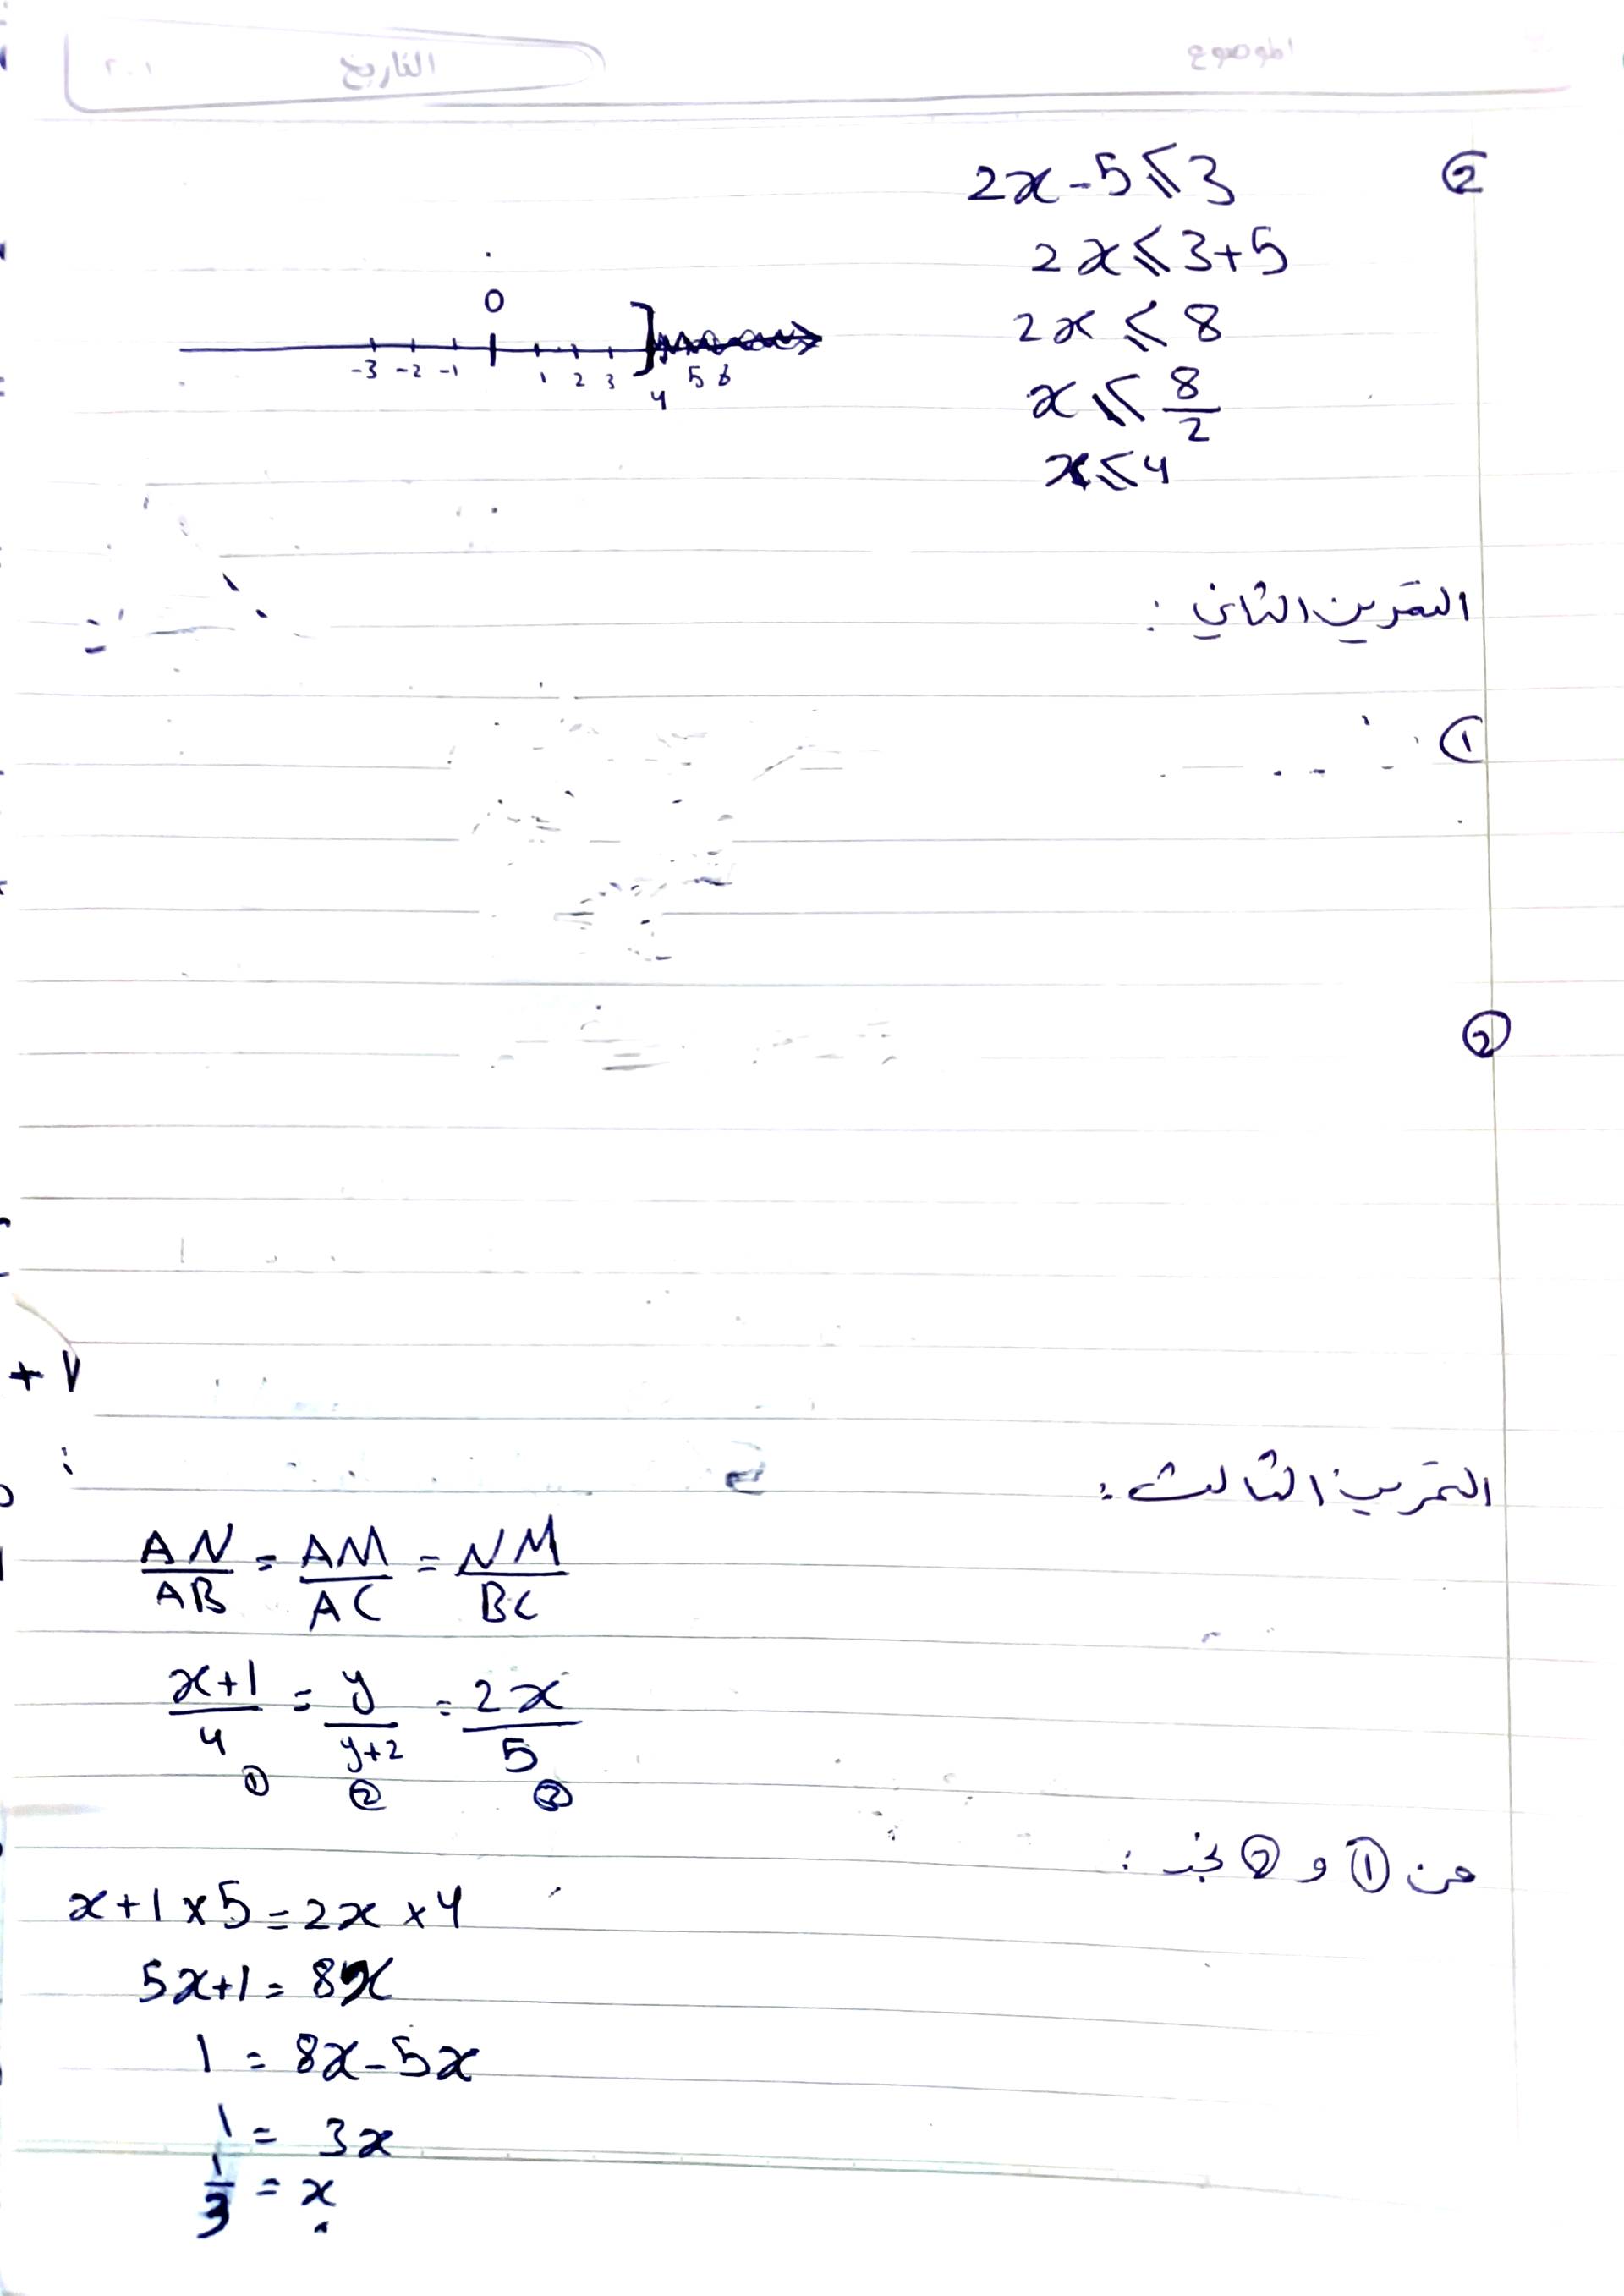 الموضوع
التاريخ ٢٠١
② 2x-5⩽3
2x⩽3+5
2x⩽8
x⩽8/2
x⩽4
0
-3 -2 -1 1 2 3 4 5 6
التمرين الثاني :
①
②
+ 1
التمرين الثالث :
AN/AB = AM/AC = NM/BC
x+1/4 = y/y+2 = 2x/5
① ② ③
من ① و ② نجد :
x+1×5=2x×4
5x+1=8x
1=8x-5x
1=3x
1/3=x